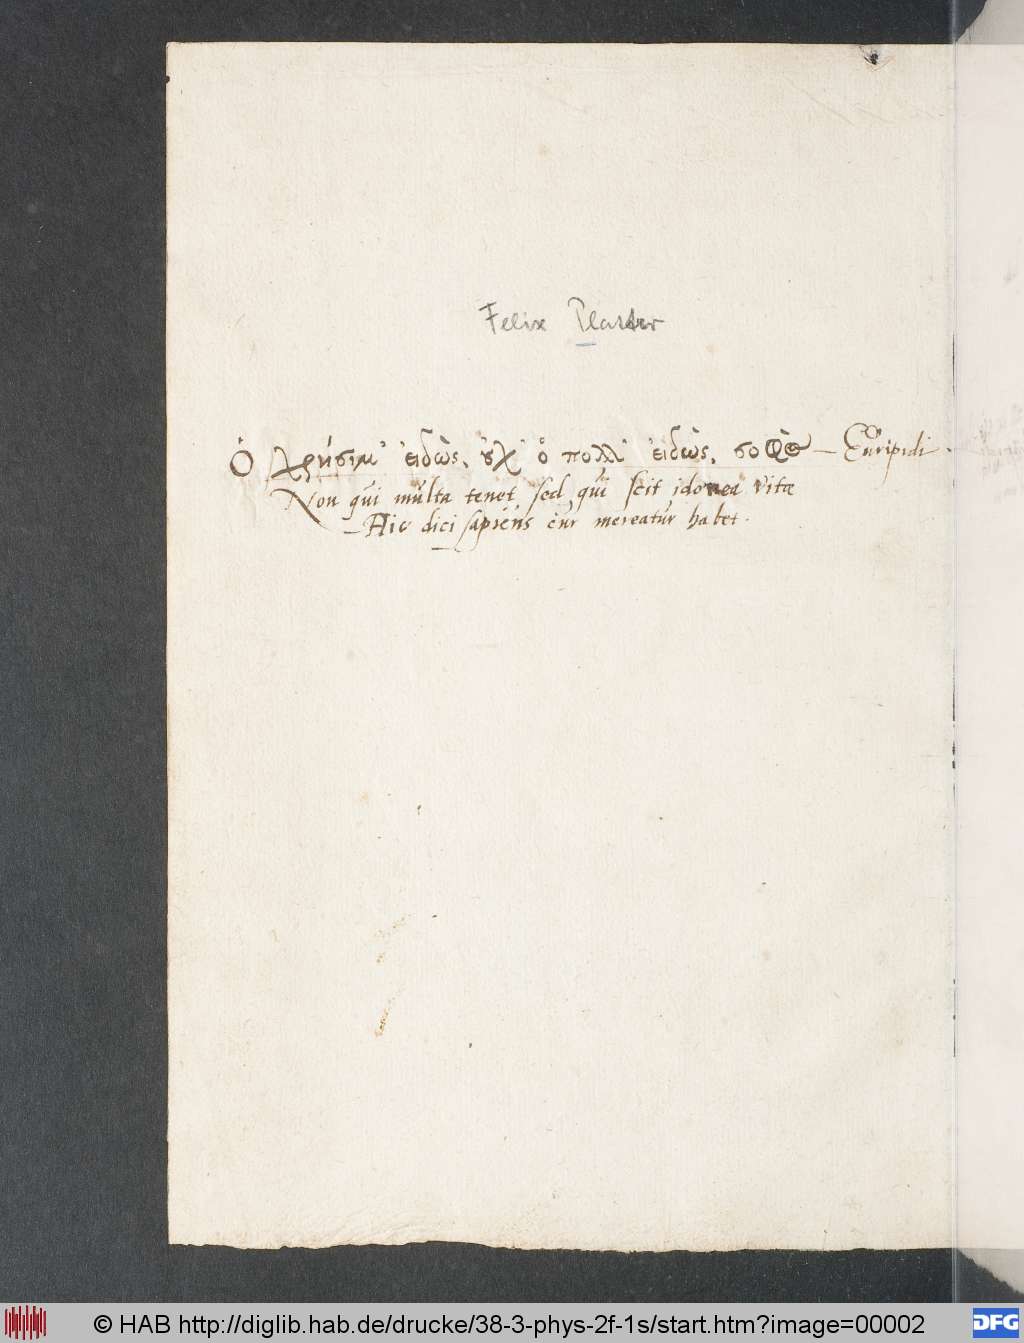 Felix Platter
Ὁ χρήσιμ' εἰδὼς, οὐχ' ὁ πολλ' εἰδὼς, σοφὸς — Euripidi .
Non qui multa tenet sed qui scit idonea vitae
Hic dici sapiens cur mereatur habet.
© HAB http://diglib.hab.de/drucke/38-3-phys-2f-1s/start.htm?image=00002
DFG